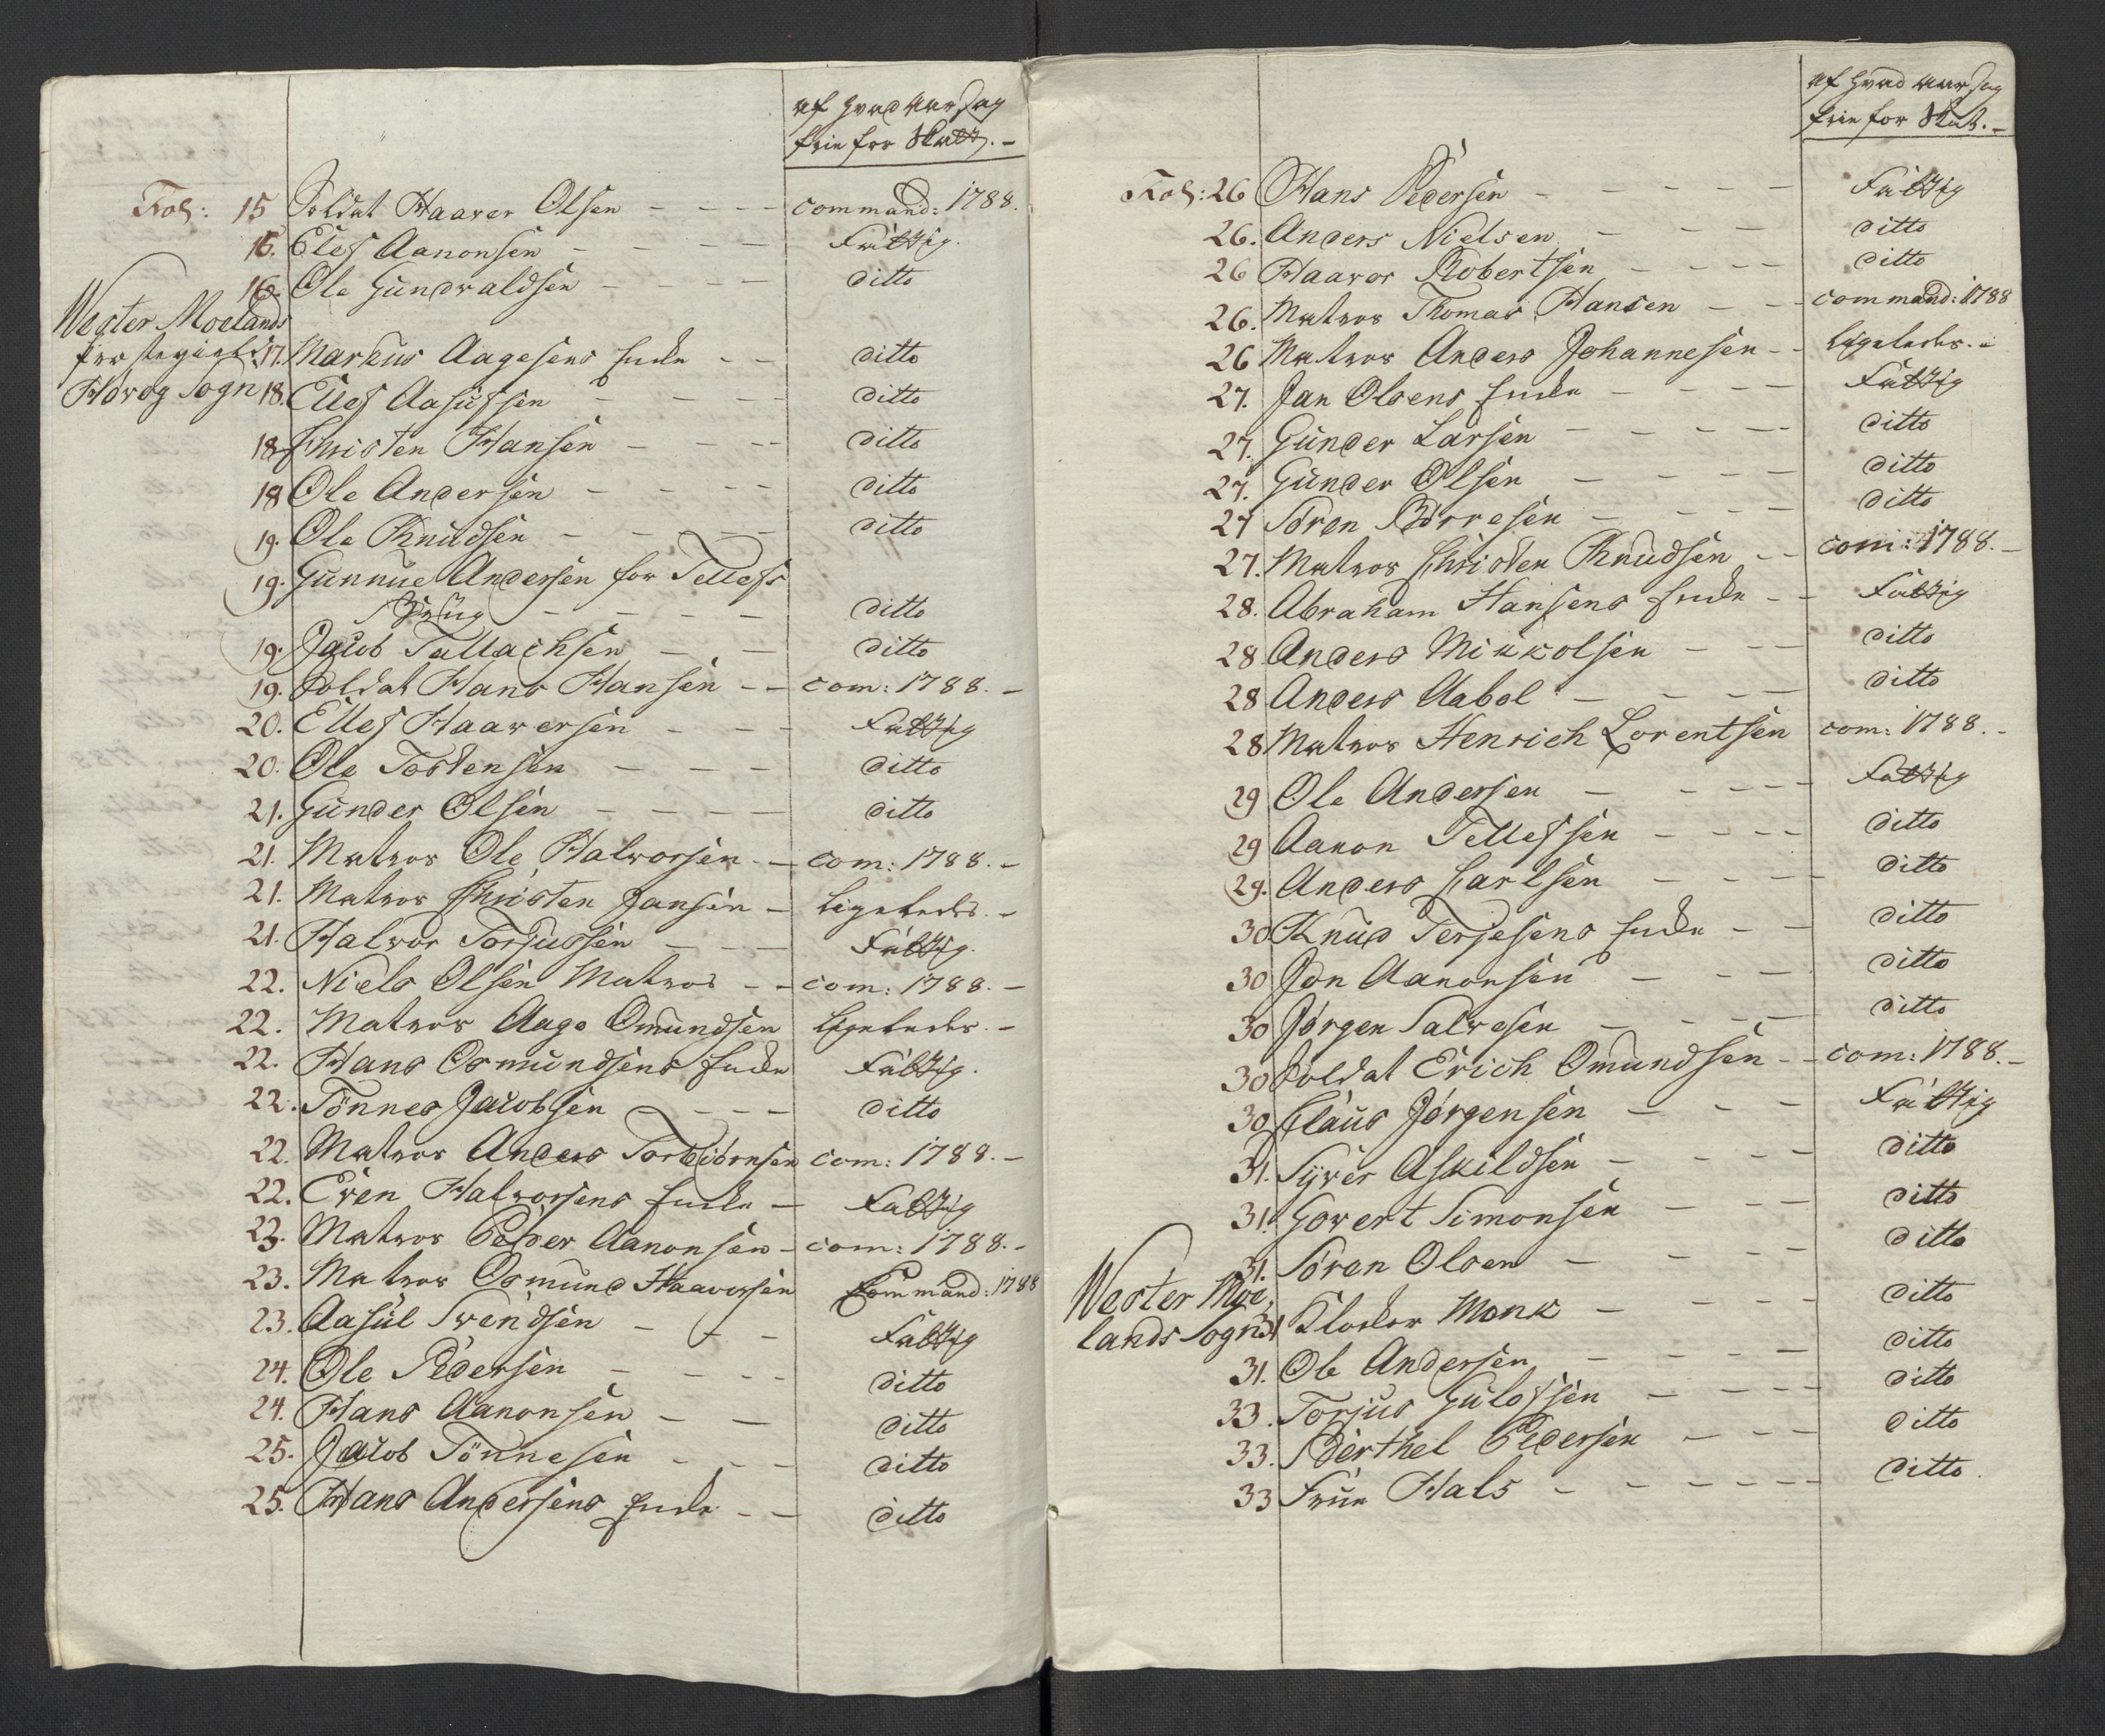 af hvad aarsag
frie for Skatt. -
Fol: 15 Soldat Haaver Olsen - - - command: 1788.
16. Elef Aanonsen - - - - Fattig.
16. Ole Gundvaldsen - - - - ditto
Wester Moelands
Præstegield 17. Markus Aagesens Encke - - ditto
Høvog Sogn 18. Ellef Aasulfsen - - - - ditto
18. Christen Hansen - - - ditto
18 Ole Andersen - - - - ditto
19. Ole Knudsen - - - - ditto
19. Gunnue Andersen for Tellefs
- - - - ditto
19. Jacob Tallachsen - - ditto
19. Soldat Hans Hansen - - com: 1788. -
20. Ellef Haaversen - - - Fattig
20. Ole Tostensen - - - ditto
21. Gunder Olsen - - - - ditto
21. Matros Ole Halvorsen - - com: 1788. -
21. Matros Christen Jansen - ligeledes. -
21. Halvor Torjussen - - - Fattig.
22. Niels Olsen Matros - - com: 1788. -
22. Matros Aage Omundsen ligeledes. -
22. Hans Osmundsens Encke Fattig.
22. Tönnes Jacobsen - - - ditto
22. Matros Anders Torbiörnsen com: 1788. -
22. Even Halvorsens Encke - Fattig
23. Matros Peder Aanonsen - com: 1788. -
23. Matros Osmund Haaversen Command: 1788
23. Aasul Svendsen - - - Fattig
24. Ole Pedersen - - - - ditto
24. Hans Aanonsen - - ditto
25. Jacob Tönnesen - - - ditto
25. Hans Andersens Encke - - ditto
af hvad aarsag
frie for Skat. -
Fol: 26 Hans Pedersen - - - - - Fattig
26. Anders Nielsen - - - ditto
26 Haavor Robertsen - - - - ditto
26. Matros Thomas Hansen - - command: 1788
26 Matros Anders Johannesen - - ligeledes. -
27. Jan Olsens Encke - - - - Fattig
27. Gunder Larsen - - - - - ditto
27. Gunder Olsen - - - - ditto
27 Sören Börresen - - - - ditto
27. Matros Christen Knudsen - - com: 1788. -
28. Abraham Hansens Encke - - Fattig
28. Anders Mikkolsen - - - ditto
28 Anders Aabol - - - - ditto
28 Matros Henrich Lorentsen com: 1788. -
29 Ole Andersen - - - - - Fattig
29 Aanon Tellefsen - - - - ditto
29. Anders Carlsen - - - - ditto
30 Knud Terjesens Encke - - ditto
30 Jon Aanonsen - - - ditto
30 Jörgen Salvesen - - - - ditto
30 Soldat Erich Omundsen - - com: 1788. -
30 Claus Jörgensen - - - Fattig
31. Syver Askildsen - - - - ditto
31. Govert Simonsen - - - ditto
31. Sören Olsen - - - - ditto
Wester Moe-
lands Sogn 31 Klocker Monk - - - - ditto
31. Ole Andersen - - - - ditto
33. Torjus Gulofsen - - - - ditto
33. Berthel Pedersen - - - ditto
33 Frue Hals - - - - - ditto.